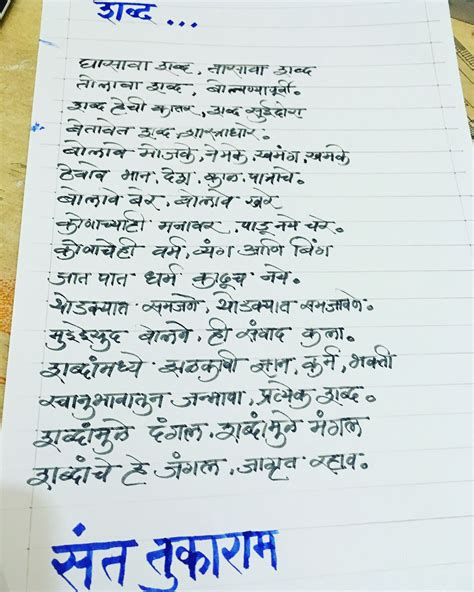 शब्द ...
घासावा शब्द, तासावा शब्द
तोलावा शब्द, बोलण्यापूर्वी.
शब्द हेची कातर, शब्द सुईदोरा
बेतावेत शब्द, शास्त्राधारे.
बोलावे मोजके, नेमके, खमंग, खमके
ठेवावे भान, देश, काळ, पात्राचे.
बोलावे बरे, बोलावे खरे
कोणाच्याही मनावर, पाडू नये चरे.
कोणाचेही वर्म, व्यंग आणि बिंग
जात पात धर्म काढूच नये.
थोडक्यात समजणे, थोडक्यात समजावणे.
मुद्देसुद बोलणे, ही संवाद कला.
शब्दांमध्ये झळकावी ज्ञान, कर्म, भक्ती
स्वानुभावातुन जन्मावा, प्रत्येक शब्द.
शब्दांमुळे दंगल, शब्दांमुळे मंगल
शब्दांचे हे जंगल, जागृत रहावं.
संत तुकाराम